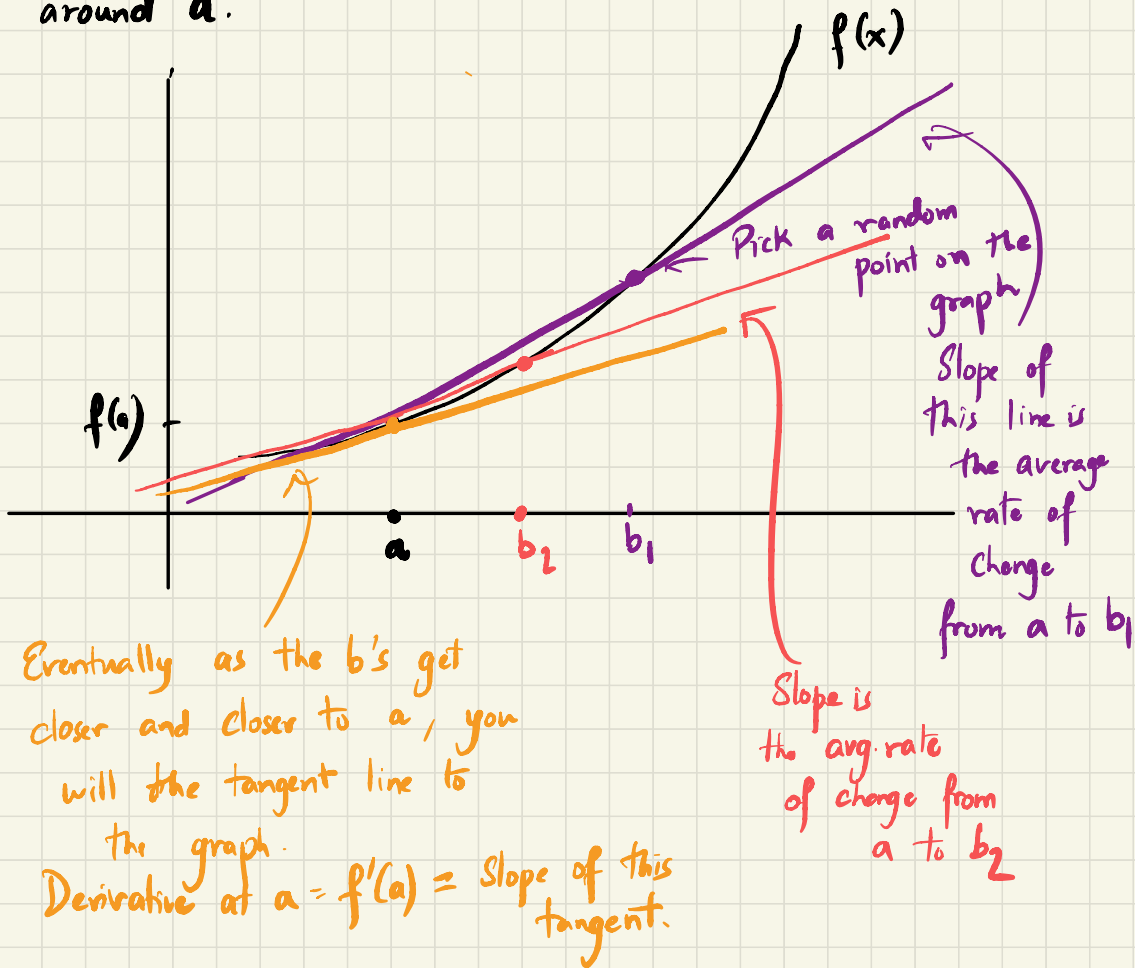 around a.
f(x)
Pick a random
point on the
graph
Slope of
this line is
the average
rate of
change
from a to b1
f(a)
a
b2
b1
Eventually as the b's get
closer and closer to a, you
will the tangent line to
the graph.
Derivative at a = f'(a) = Slope of this
tangent.
Slope is
the avg. rate
of change from
a to b2